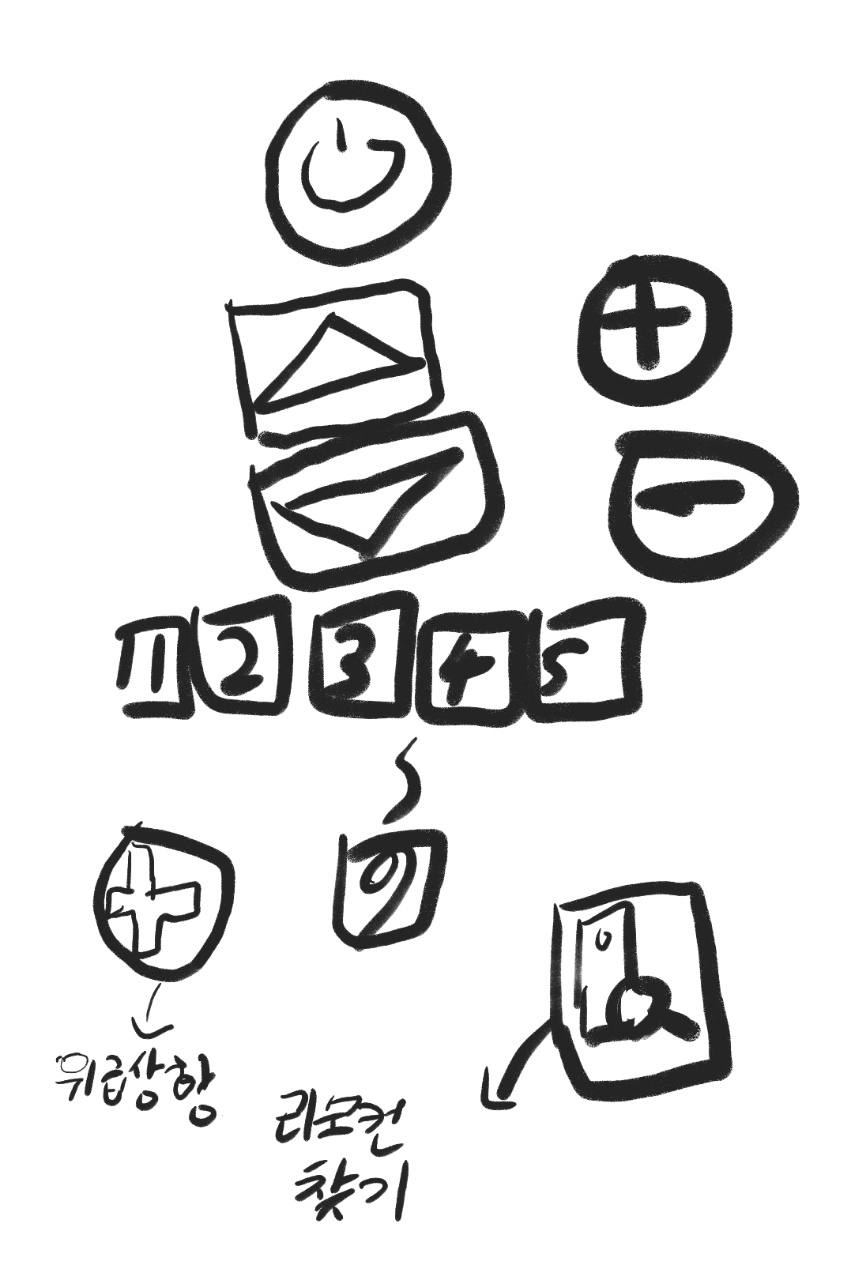 1 2 3 4 5
9
위급상항
리모컨
찾기